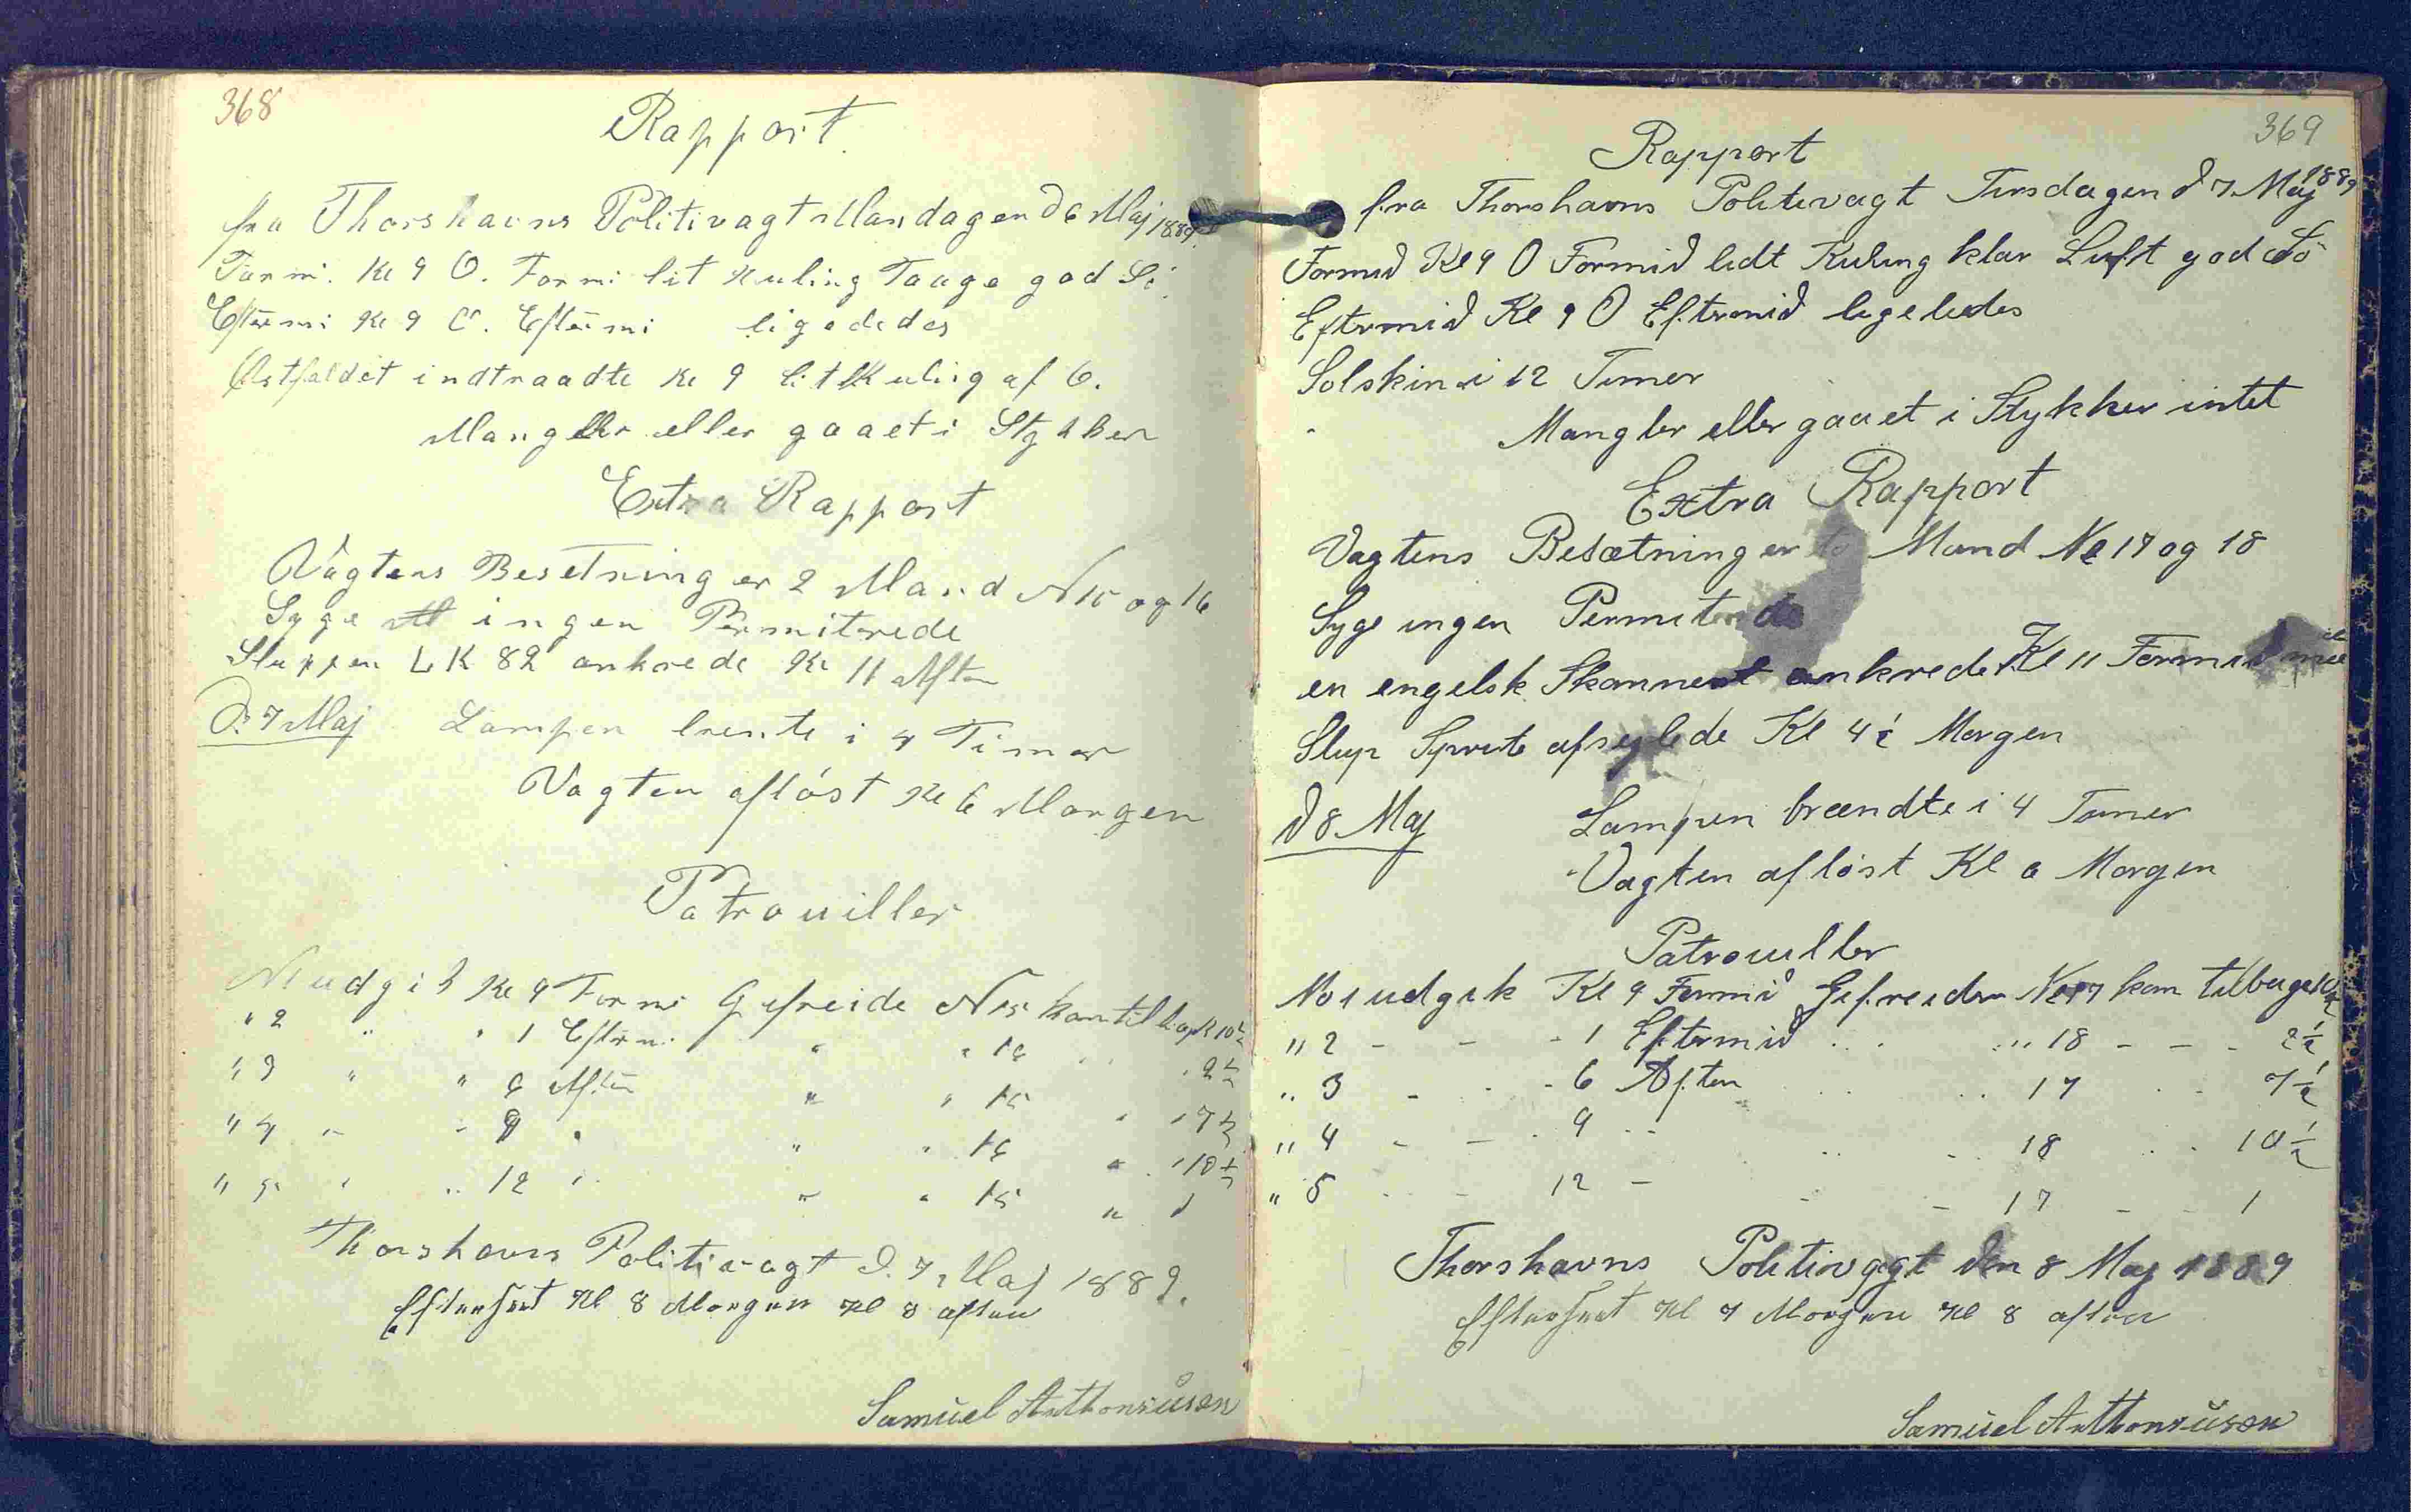 368
Rapport
fra Thorshavns Politivagt Mandagen d 6 Maj 1889.
Formi. Kl 9 O. Formi lit Kuling Taage god Sö.
Efterm: Kl 9 O. Eftermi ligededes
Østfaldet indtraadte Kl 9 lit Kuling af O.
Mangeller eller gaaet i Stykker
Extra Rapport
Vagtens Besetning er 2 Mand N 15 og 16
Syge ingen Permitrede
Sluppen LK 82 ankrede Kl 11 Aften
D. 7 Maj Lampen brente i 4 Timer
Vagten afløst Kl 6 Morgen
Patrouiller
N 1 udgik Kl 9 Formi Gefreide N 15 kom tilbage Kl 10½
" 2 " " 1 Efterm. " " 16 " 2½
" 3 " " 6 Aften " " 15 " " 7½
" 4 " " 9 " " " 16 " " 10½
" 5 " " 12 " " " 15 " 1
Thorshavns Politivagt D. 7 Maj 1889.
Efterset Kl 8 Morgen Kl 8 aften
Samuel Anthoniusen
369
Rapport
fra Thorshavns Politivagt Tirsdagen d 7. Maj 1889
Formid Kl 9 O Formid lidt Kuling klar Luft god Sö
Eftermid Kl 9 O Eftermid ligeledes
Solskin i 12 Timer
Mangler eller gaaet i Stykker intet
Extra Rapport
Vagtens Besætning er to Mand No 17 og 18
Syge ingen Permiterede
en engelsk Skonnert ankrede Kl 11 Formid
Slup Sprute afseglede Kl 4½ Morgen
d 8 Maj Lampen brændte i 4 Timer
Vagten afløst Kl 6 Morgen
Patrouiller
No 1 udgik Kl 9 Formid Gefreider No 17 kom tilbage 10½
" 2 - - - 1 Eftermid " 18 - - - 2½
" 3 - - - 6 Aften 17 7½
" 4 - - - 9 - 18 10½
" 5 - - 12 - - - 17 - - 1
Thorshavns Politivagt den 8 Maj 1889
Efterset Kl 7 Morgen Kl 8 aften
Samuel Anthoniusen